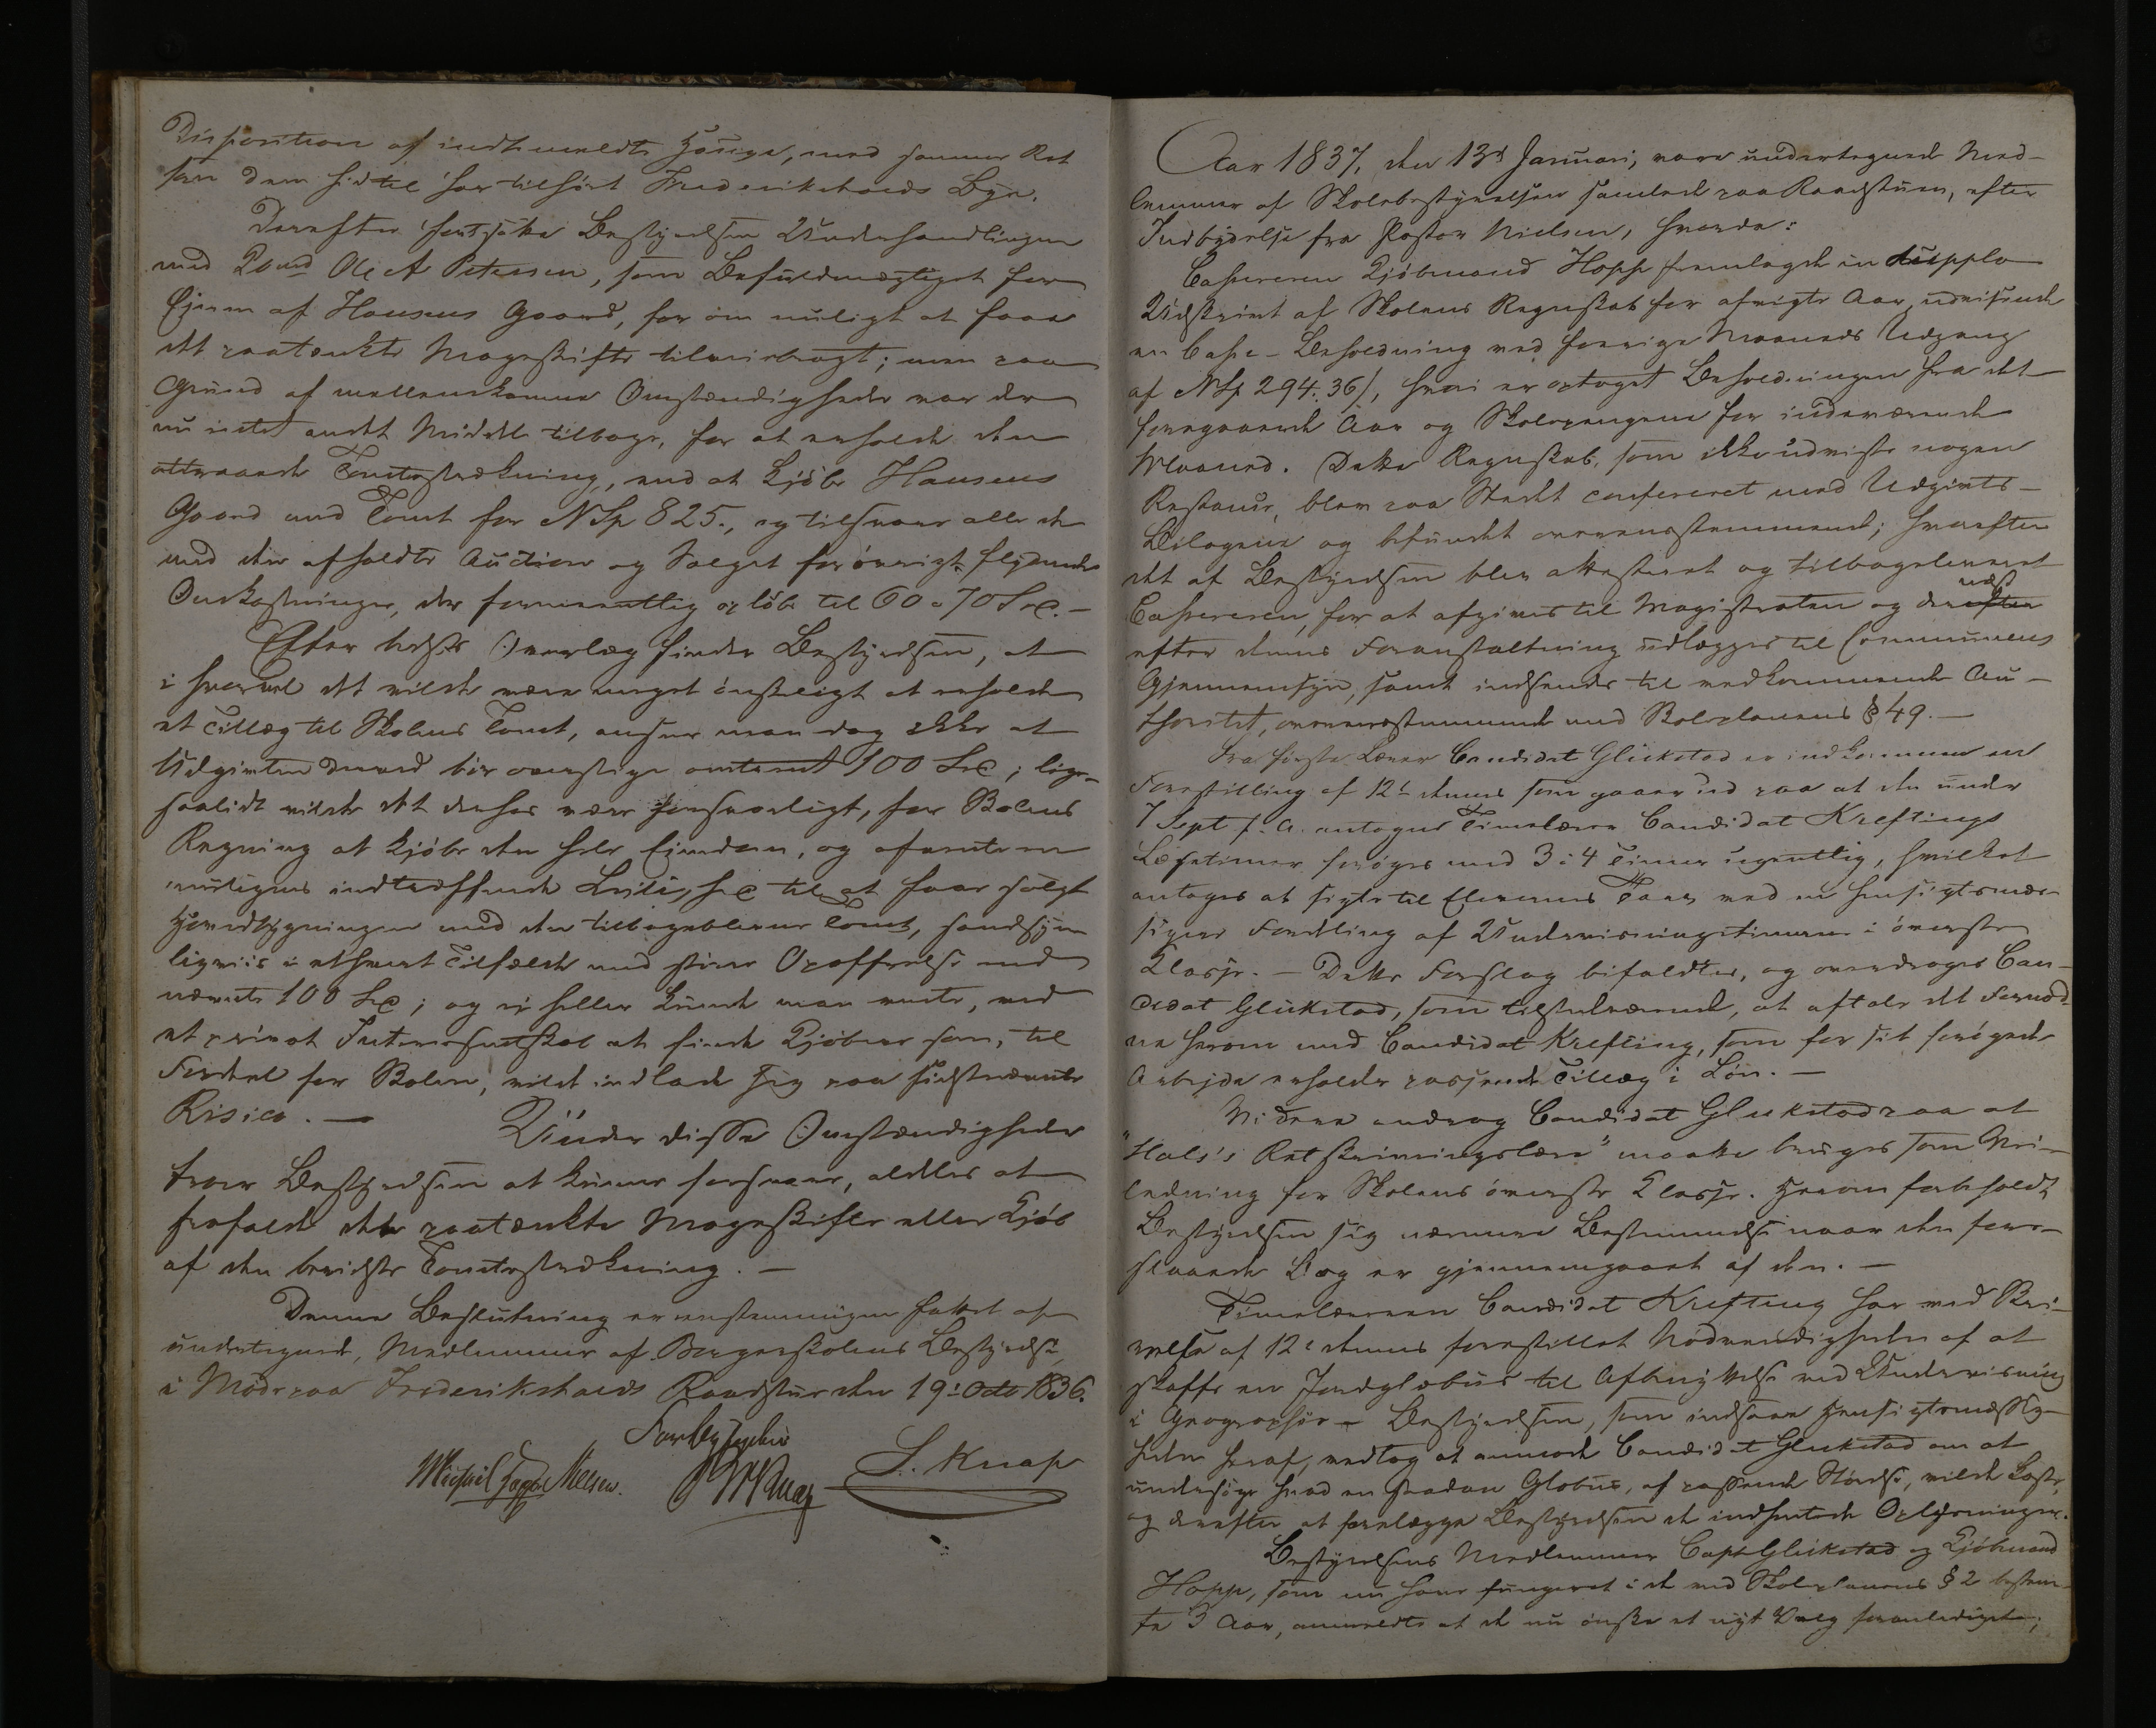 Disposition af indkomeldte Hauge, med samme Ret
som den hidtil har tilhørt Frederikshalds Bye.
Derefter fortsatte Bestyrelsen Underhandlingen
med Ole A Petersen, som Befuldmægtiget for
Eieren af Hansens Gaard, for om muligt at faae
det paatænkte Mageskifte tilveiebragt; men paa
Grund af mellemkomne Omstændigheder var der
nu intet andet Middel tilbage, for at erholde den
attraaede Tomtestrækning, end at kjøbe Hansens
Gaard med Tomt for NSp 825., og tilsvare alle de
med den afholdte Auction og Salget forøvrigt flydende
Omkostninger, der formeentlig opløbe til 60 a 70 Spd.-
Efter bedste Overlæg finder Bestyrelsen, at
i hvorvel det vilde være meget ønskeligt at erholde
et Tillæg til Skolens Tomt, anseer man dog ikke at
Udgivten derved bør overstige omtrent 100 Spd; lige-
saalidt vilde det derhos være forsvarligt, for Skolens
Regning at kjøbe den hele Eiendom, og afvente en
muligens indtræffende Leilighed til at faae solgt
Hovedbygningen med den tilbageblevne Tomt, sandsyn
ligviis i ethvert Tilfælde med større Opoffrelse end
nævnte 100 Spd; og ei heller kunde man vente, ved
et privat Interessentskab at finde Kjøbere som, til
Fordel for Skolen, vilde indlade sig paa sidstnævnte
Risico. — Under disse Omstændigheder
troer Bestyrelsen at kunne forsvare, aldeles at
frafalde det paatænkte Mageskifte eller Kjøb
af den bemeldte Tomtestrækning. —
Denne Beslutning er eenstemmigen fattet af
undertegnede, Medlemmer af Borgerskolens Bestyrelse
i Møde paa Frederikshalds Raadstue den 19: Octb 1836.
Michael Nielsen.
S. Knap
Aar 1837, den 13d Januari, vare undertegnede Med-
lemmer af Skolebestyrelsen samlede paa Raadstuen, efter
Indbydelse fra Pastor Nielsen, hvorda:
Cassereren Kjøbmand Hopp fremlagde in dupplo
Udskrivt af Skolens Regnskab for afvigte Aar, udvisende
en Casse-Beholdning ved forrige Maaneds Udgang
af NSp 294. 36/, hvori er optaget Beholdningen fra det
foregaaende Aar og Skolepengene for indeværende
Maaned. Dette Regnskab, som ikke udviste nogen
Restance, blev paa Stedet confereret med Udgivts-
Bilagene og befundet overensstemmende; hvorefter
det af Bestyrelsen blev attesteret og tilbageleveret
Cassereren, for at afgives til Magistraten og derefter næst
efter dennes Foranstaltning udlægges til Communens
Gjennemsyn, samt indsendes til vedkommende Au-
thoritet, overensstemmende med Skoleplanens § 49. —
Fra første Lærer Candidat Glückstad er indkommen en
Forestilling af 12te dennes som gaaer ud paa at den under
7 Sept f. A. antagne Timelærer Candidat Kreftings
Læsetimer forøges med 3 á 4 Timer ugentlig, hvilket
antages at sigte til Elevernes Tarv ved en hensigtsmæs-
sigere Fordeling af Underviisningstimerne i øverste
Klasse. — Dette Forslag bifaldtes, og overdroges Can-
didat Glückstad, som tilstedeværende, at aftale det Fornød-
ne herom med Candidat Krefting, som for sit forøgede
Arbejde erholder passende Tillæg i Løn. —
Videre androg Candidat Gluckstad paa at
"Hals's Retskrivningslære" maatte bruges som Vei-
ledning for Skolens øverste Klasse. Herom forbeholdt
Bestyrelsen sig nærmere Bestemmelse naar den fore-
slaaede Bog er gjennemgaaet af den. —
Timelæreren Candidat Krefting har ved Skri-
velse af 12te dennes forestillet Nødvendigheden af at
skaffe en Jordglobus til Afbenyttelse ved Underviisning
i Geographie — Bestyrelsen, som indsaae Hensigtsmæssig-
heden heraf, vedtog at anmode Candidat Gluckstad om at
undersøge hvad en saadan Globus, af passende Størrelse, vilde koste,
og derefter at forelægge Bestyrelsen de indhentede Oplysninger.
Bestyrelsens Medlemmer Capt Glückstad og Kjøbmand
Hopp, som nu have fungeret i de ved Skoleplanens § 2 bestem-
te 3 Aar, anmeldte at de nu ønske et nyt Valg foranlediget;